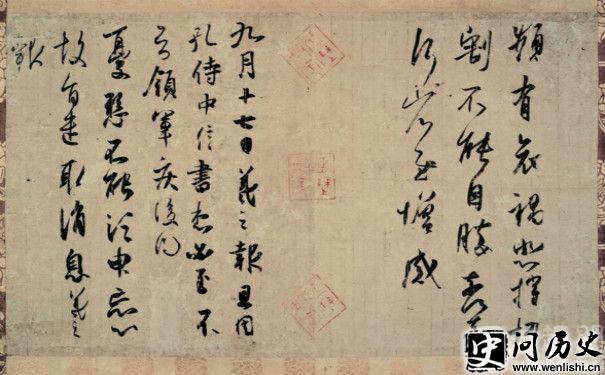 頻有哀禍悲摧切
割不能自勝奈何
奈何省慰增感
九月十七日羲之報且因
孔侍中信書想必至不
知領軍疾後問
憂懸不能須臾忘心
故旦遣取消息羲之
報
史问历史
www.wenlishi.cn